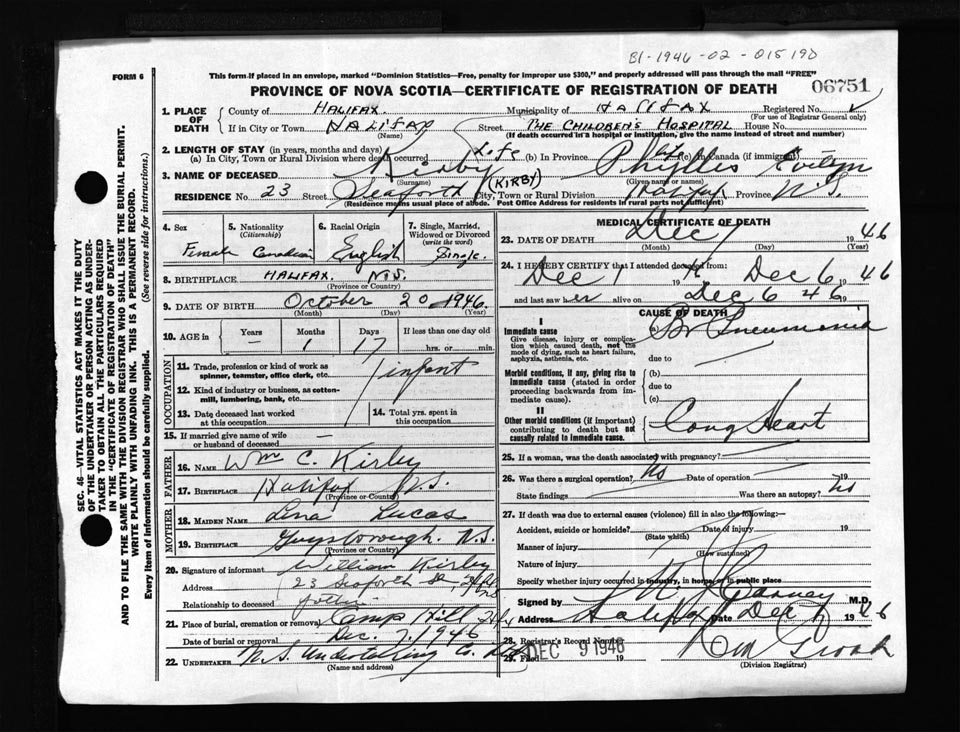 B1-1946-02-015190
06751
FORM 6
This form if placed in an envelope, marked "Dominion Statistics—Free, penalty for improper use $300," and properly addressed will pass through the mail "FREE"
PROVINCE OF NOVA SCOTIA—CERTIFICATE OF REGISTRATION OF DEATH
1. PLACE OF DEATH
County of HALIFAX. Municipality of HALIFAX Registered No.
(For use of Registrar General only)
If in City or Town HALIFAX Street THE CHILDREN'S HOSPITAL House No.
(Name) (If death occurred in a hospital or institution, give name instead of street and number)
2. LENGTH OF STAY (in years, months and days)
(a) In City, Town or Rural Division where death occurred Life (b) In Province life (c) In Canada (if immigrant)
3. NAME OF DECEASED Kirby (KIRBY) Phyllis Evelyn
(Surname) (Given name or names)
RESIDENCE No. 23 Street Seaforth City, Town or Rural Division Halifax Province N.S.
(Residence means usual place of abode. Post Office Address for residents in rural parts not sufficient)
4. Sex Female
5. Nationality (Citizenship) Canadian
6. Racial Origin English
7. Single, Married, Widowed or Divorced (write the word) Single.
8. BIRTHPLACE HALIFAX. N.S.
(Province or Country)
9. DATE OF BIRTH October 20 1946.
(Month) (Day) (Year)
10. AGE in Years Months Days If less than one day old
— 1 17 hrs. or min.
OCCUPATION
11. Trade, profession or kind of work as spinner, teamster, office clerk, etc. infant
12. Kind of industry or business, as cotton-mill, lumbering, bank, etc.
13. Date deceased last worked at this occupation
14. Total yrs. spent in this occupation
15. If married give name of wife or husband of deceased —
FATHER
16. NAME Wm C. Kirby
17. BIRTHPLACE Halifax N.S.
(Province or Country)
MOTHER
18. MAIDEN NAME Lena Lucas
19. BIRTHPLACE Guysborough. N.S.
(Province or Country)
20. Signature of informant William Kirby
Address 23 Seaforth St, Hfx
NS
Relationship to deceased father
21. Place of burial, cremation or removal Camp Hill Hfx
Date of burial or removal Dec. 7, 1946
22. UNDERTAKER N.S. Undertaking Co. Ltd
(Name and address)
MEDICAL CERTIFICATE OF DEATH
23. DATE OF DEATH Dec 7 1946
(Month) (Day) (Year)
24. I HEREBY CERTIFY that I attended deceased from:
Dec 1 19 to Dec 6 46
and last saw her alive on Dec 6 46 19
CAUSE OF DEATH
I
Immediate cause
Give disease, injury or complication which caused death, not the mode of dying, such as heart failure, asphyxia, asthenia, etc.
(a) Br Pneumonia
due to
Morbid conditions, if any, giving rise to immediate cause (stated in order proceeding backwards from immediate cause).
(b)
due to
(c)
II
Other morbid conditions (if important) contributing to death but not causally related to immediate cause.
Cong Heart
25. If a woman, was the death associated with pregnancy?
26. Was there a surgical operation? No Date of operation 19
State findings Was there an autopsy? No
27. If death was due to external causes (violence) fill in also the following:—
Accident, suicide or homicide? Date of injury 19
(State which)
Manner of injury
(How sustained)
Nature of injury
Specify whether injury occurred in industry, in home, or in public place
Signed by M.D.
Address Halifax Date Dec 7 1946
28. Registrar's Record Number
29. Filed DEC 9 1946 19
(Division Registrar)
SEC. 46—VITAL STATISTICS ACT MAKES IT THE DUTY OF THE UNDERTAKER OR PERSON ACTING AS UNDERTAKER TO OBTAIN ALL THE PARTICULARS REQUIRED IN THE "CERTIFICATE OF REGISTRATION OF DEATH"
AND TO FILE THE SAME WITH THE DIVISION REGISTRAR WHO SHALL ISSUE THE BURIAL PERMIT.
WRITE PLAINLY WITH UNFADING INK. THIS IS A PERMANENT RECORD.
Every item of information should be carefully supplied. (See reverse side for instructions.)